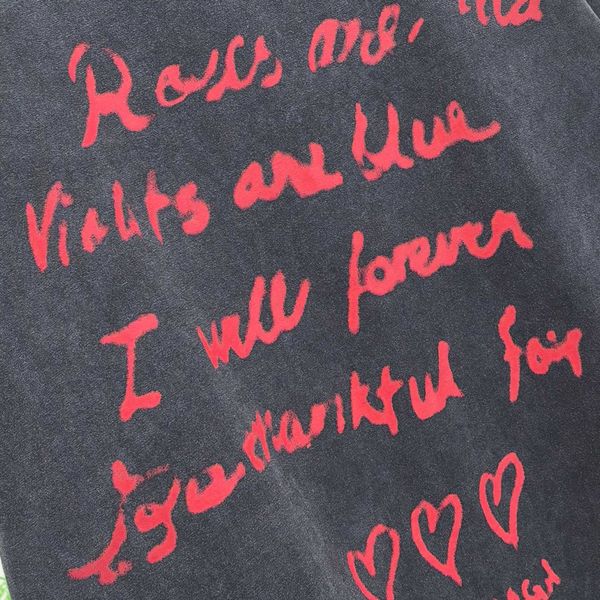 Roses are,
Violets are blue
I will forever
thankful for